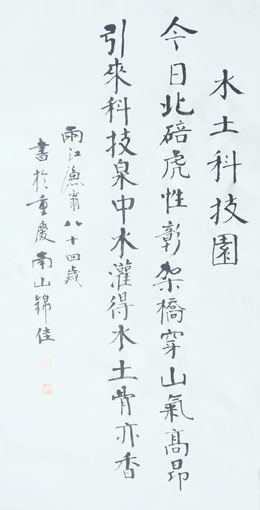 水土科技園
今日北碚虎性彰架橋穿山氣高昂
引來科技泉中水灌得水土骨亦香
雨江漁翁八十四歲
書於重慶南山錦佳